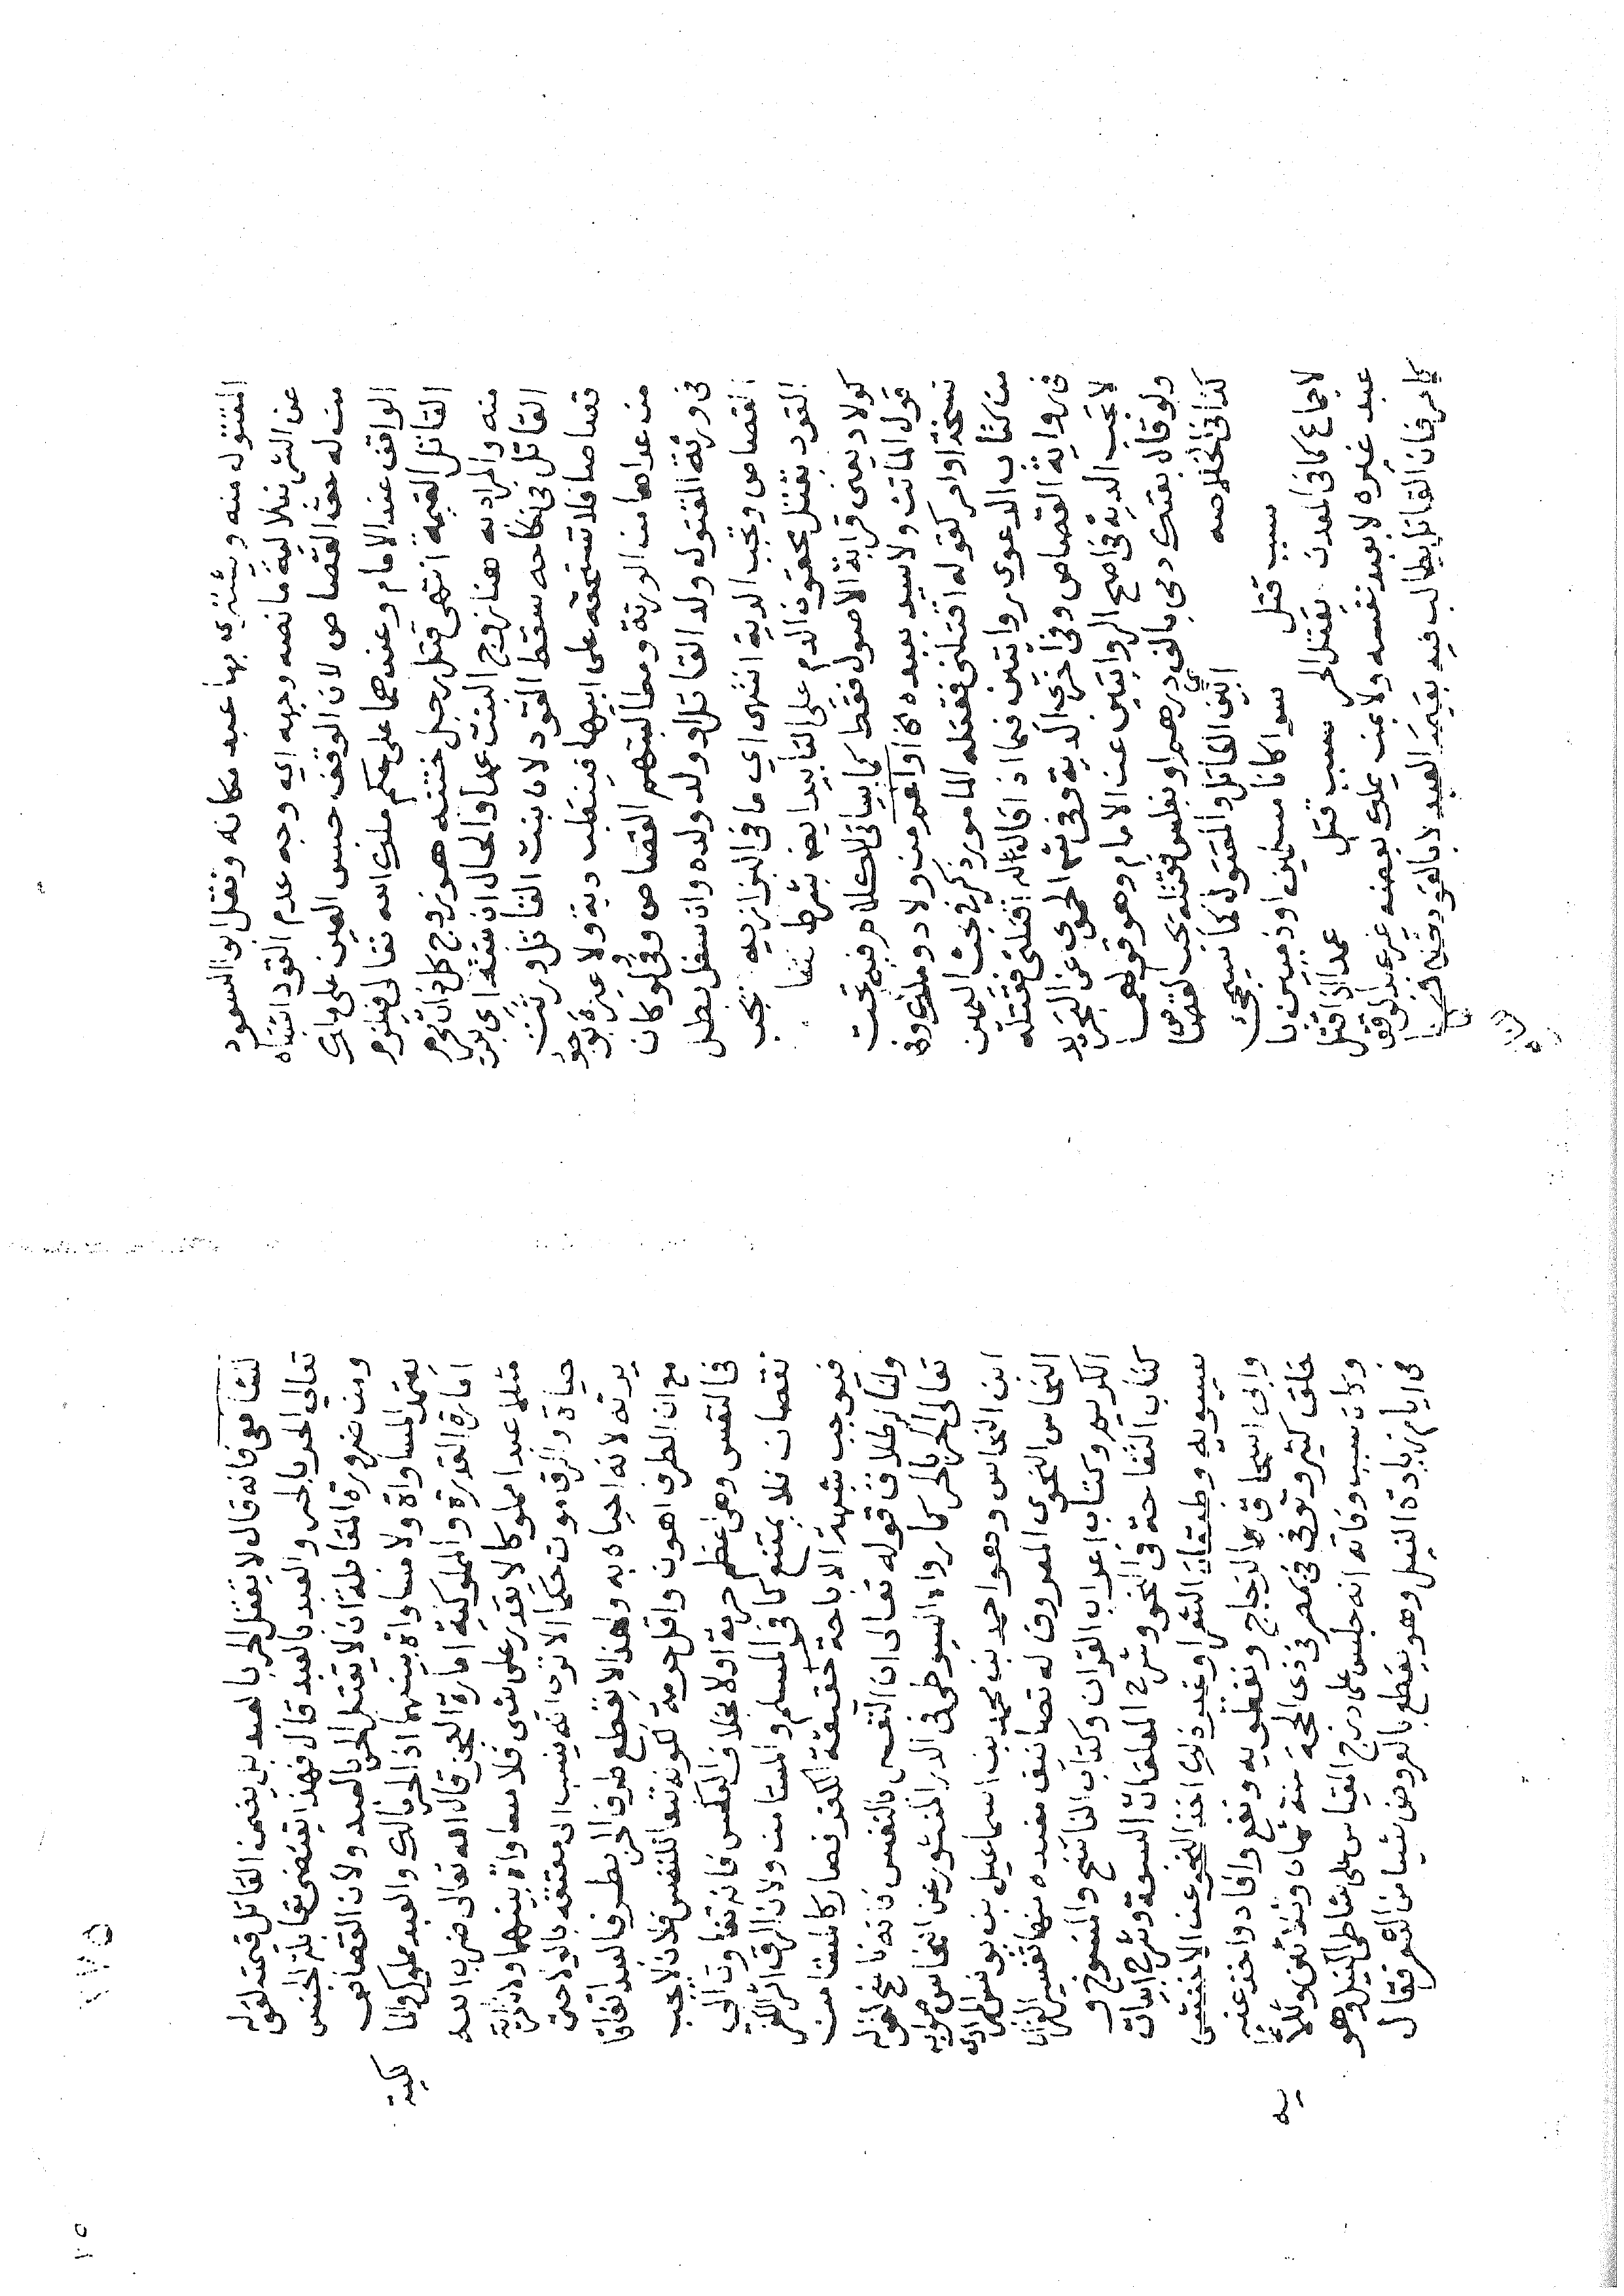 المقتول منه ويشترى بها عبد مكانه ونقل ابو السعود
عن الشرنبلالية ما نصه وجهه اي وجه عدم القود اشتباه
من له حق القصاص لان الوقف حبس العين على ملك
الواقف عند الامام وعندهما على حكم ملك الله تعالى فيلزم
القاتل القيمة انتهى قتل رجل ختنه هو زوج كل ذات محرم
منه والمراد به هنا زوج البنت عمدا والحال ان بنته اي بنت
القاتل في نكاحه سقط القود لان بنت القاتل ورثت
قصاصا فلا تستحقه على ابيها فينقلب دية ولا عبرة بوجود
من عداها من الورثة ومطالبتهم القصاص وفى لو كان
فى ورثة المقتول ولد القاتل او ولد ولده وان سفل بطل
القصاص وتجب الدية انتهى اي ما فى البزازيه يجب
القود بقتل محقون الدم على التأبيد ايض بشرط نفا
كولاد يعنى قرابة الاصول فقط كما سياتى الكلام فيه تحت
قول الماتن ولا سيد بعبده كذا اواهم من ولاد وملك وفى
نسخة او امر كقوله اقتلنى فقتله المامور ذكر فى بحث اليمين
من كتاب الدعوى روايتين فيما اذا قال له اقتلنى فقتله
فى رواية القصاص وفى اخرى الدية وفى شر الحموى عن التجريد
لا تجب الدية فى اصح الروايتين عن الامام وهو قولهما
ولو قال بعتك دمى بالف درهم او بفلس فقتله يجب القصاص
كذا فى الخلاصه
ابين القاتل والمقتول كما سيجئ
سبب قتل سوا كانا مسلمين او ذميين نا
لاجماع كما فى المعدن يقتل الحر سبب قتل عمدا اذا قتل
عبد غيره لا بعبد نفسه ولا بمن يملك بعضه غير عبد الوقف
كما مر فان القاتل يطالب فيه بقيمة العبد لا بالقود
للشافعى فانه قال لا يقتل الحر بالعبد بل يضمن القاتل قيمته لقوله
تعالى الحر بالحر والعبد بالعبد قال فهذا يقتضى مقابلة الجنس
ومن ضرورة المقابلة ان لا يقتل الحر بالعبد ولان القصاص
يعتمد المساواة ولا مساواة بينهما اذ الحر مالك والعبد مملوك والما
لكية
امارة القدرة والمملوكية امارة العجز قال الله تعالى ضرب الله
مثلا عبدا مملوكا لا يقدر على شى فلا مساواة بينهما ولان الحرية
حياة والرق موت حكما الا ترى انه ينسب الى معتقه بالولا حتى
يرثه لانه احياه به ولهذا لا يقطع طرف الحر بطرف العبد اتفاقا
مع ان الطرف اهون واقل حرمة لكونه تبعا للنفس فلان لا يجب
فى النفس وهى اعظم حرمة اولا بخلاف العكس فانه تفاوت الى
نقصان فلا يمتنع كما فى المسلم والمستامن ولان الرق اثر الكفر
فيوجب شبهة الاباحة كحقيقة الكفر فصار كالمستامن
ولنا اطلاق قوله تعالى ان النفس بالنفس فانه ناسخ لقوله
تعالى الحر بالحر كما رواه السيوطى فى الدر المنثور عن النحاس صوابه
ابن النحاس وهو احمد بن محمد بن اسماعيل بن يونس المرادى
النحاس النحوى المعروف له تصانيف مفيده منها تفسير القران
الكريم وكتاب اعراب القران وكتاب الناسخ والمنسوخ و
كتاب التفاحة فى النحو وشرح المعلقات السبعة وشرح ابيات
سيبويه وطبقات الشعرا وغير ذلك اخذ النحو عن الاخفش
وابى اسحاق الزجاج ونفطويه ونفع وافاد واخذ عنه
خلق كثير وتوفى فى مصر فى ذى الحجة سنة ثمان وثلاثين وثلاثما
يه
وكان سبب وفاته انه جلس على درج المقياس على شاطى النيل وهو
فى ايام زيادة النيل وهو يقطع بالعروض شيا من الشعر فقال